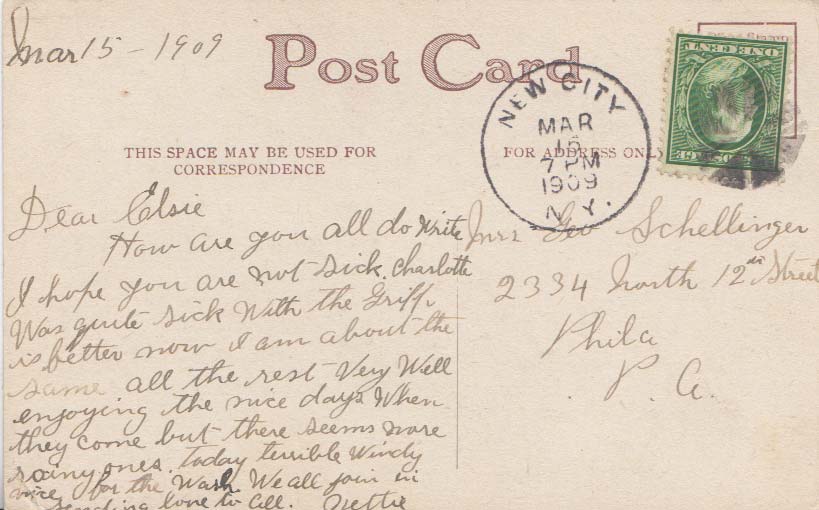 Mar 15 - 1909
Post Card
THIS SPACE MAY BE USED FOR
CORRESPONDENCE
FOR ADDRESS ONLY
NEW CITY
MAR
15
7 PM
1909
N.Y.
ONE CENT
Dear Elsie
How are you all do write
I hope you are not sick. Charlotte
Was quite sick With the Gripp
is better now I am about the
same all the rest Very Well
enjoying the nice days When
they come but there seems more
rainy ones. Today terrible Windy
nice for the Wash. We all join in
sending love to all. Nettie
Mrs Geo Schellinger
2334 North 12th Street
Phila
P. a.